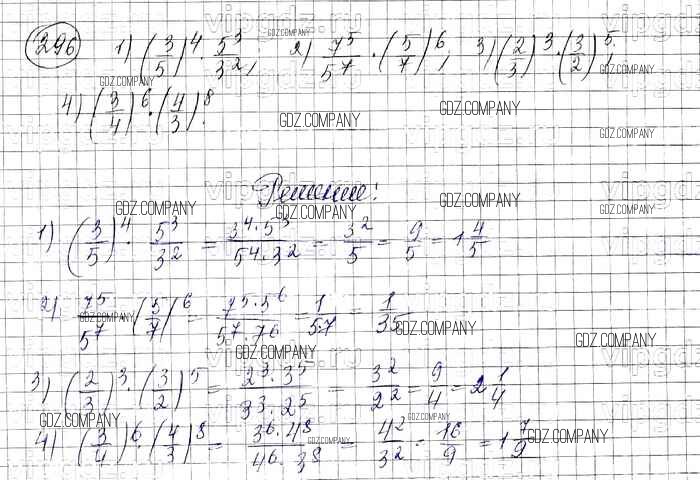 296 1) (3/5)^4 · 5^3/3^2, 2) 7^5/5^7 · (5/7)^6, 3) (2/3)^3 · (3/2)^5;
4) (3/4)^6 · (4/3)^8.
Решение:
1) (3/5)^4 · 5^3/3^2 = 3^4·5^3/5^4·3^2 = 3^2/5 = 9/5 = 1 4/5
2) 7^5/5^7 · (5/7)^6 = 7^5·5^6/5^7·7^6 = 1/5·7 = 1/35
3) (2/3)^3 · (3/2)^5 = 2^3·3^5/3^3·2^5 = 3^2/2^2 = 9/4 = 2 1/4
4) (3/4)^6 · (4/3)^8 = 3^6·4^8/4^6·3^8 = 4^2/3^2 = 16/9 = 1 7/9
GDZ.COMPANY
vipgdz.ru